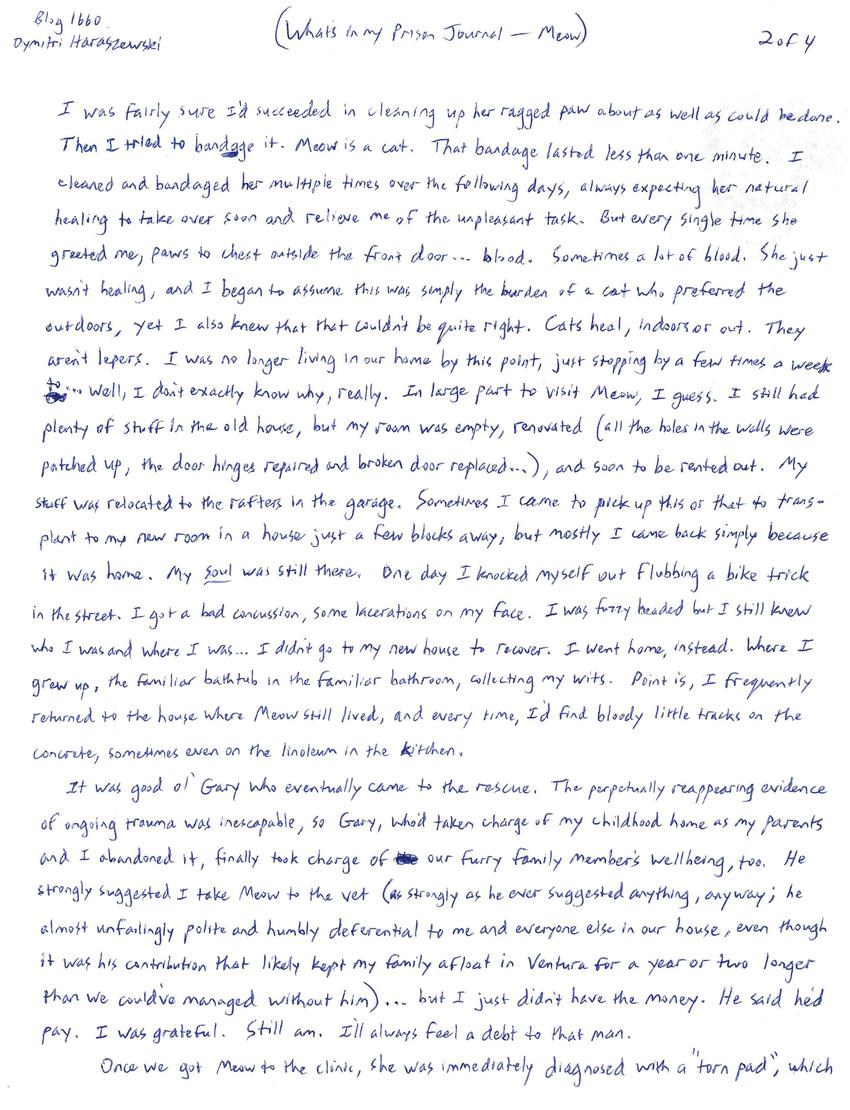 Blog 1660
Dymitri Haraszewski
(What's in my Prison Journal — Meow)
2 of 4
I was fairly sure I'd succeeded in cleaning up her ragged paw about as well as could be done.
Then I tried to bandage it. Meow is a cat. That bandage lasted less than one minute. I
cleaned and bandaged her multiple times over the following days, always expecting her natural
healing to take over soon and relieve me of the unpleasant task. But every single time she
greeted me, paws to chest outside the front door... blood. Sometimes a lot of blood. She just
wasn't healing, and I began to assume this was simply the burden of a cat who preferred the
outdoors, yet I also knew that that couldn't be quite right. Cats heal, indoors or out. They
aren't lepers. I was no longer living in our home by this point, just stopping by a few times a week
to... well, I don't exactly know why, really. In large part to visit Meow, I guess. I still had
plenty of stuff in the old house, but my room was empty, renovated (all the holes in the walls were
patched up, the door hinges repaired and broken door replaced...), and soon to be rented out. My
stuff was relocated to the rafters in the garage. Sometimes I came to pick up this or that to trans-
plant to my new room in a house just a few blocks away, but mostly I came back simply because
it was home. My soul was still there. One day I knocked myself out flubbing a bike trick
in the street. I got a bad concussion, some lacerations on my face. I was fuzzy headed but I still knew
who I was and where I was... I didn't go to my new house to recover. I went home, instead. Where I
grew up, the familiar bathtub in the familiar bathroom, collecting my wits. Point is, I frequently
returned to the house where Meow still lived, and every time, I'd find bloody little tracks on the
concrete, sometimes even on the linoleum in the kitchen.
It was good ol' Gary who eventually came to the rescue. The perpetually reappearing evidence
of ongoing trauma was inescapable, so Gary, who'd taken charge of my childhood home as my parents
and I abandoned it, finally took charge of our furry family member's wellbeing, too. He
strongly suggested I take Meow to the vet (as strongly as he ever suggested anything, anyway; he
almost unfailingly polite and humbly deferential to me and everyone else in our house, even though
it was his contribution that likely kept my family afloat in Ventura for a year or two longer
than we could've managed without him)... but I just didn't have the money. He said he'd
pay. I was grateful. Still am. I'll always feel a debt to that man.
Once we got Meow to the clinic, she was immediately diagnosed with a "torn pad", which